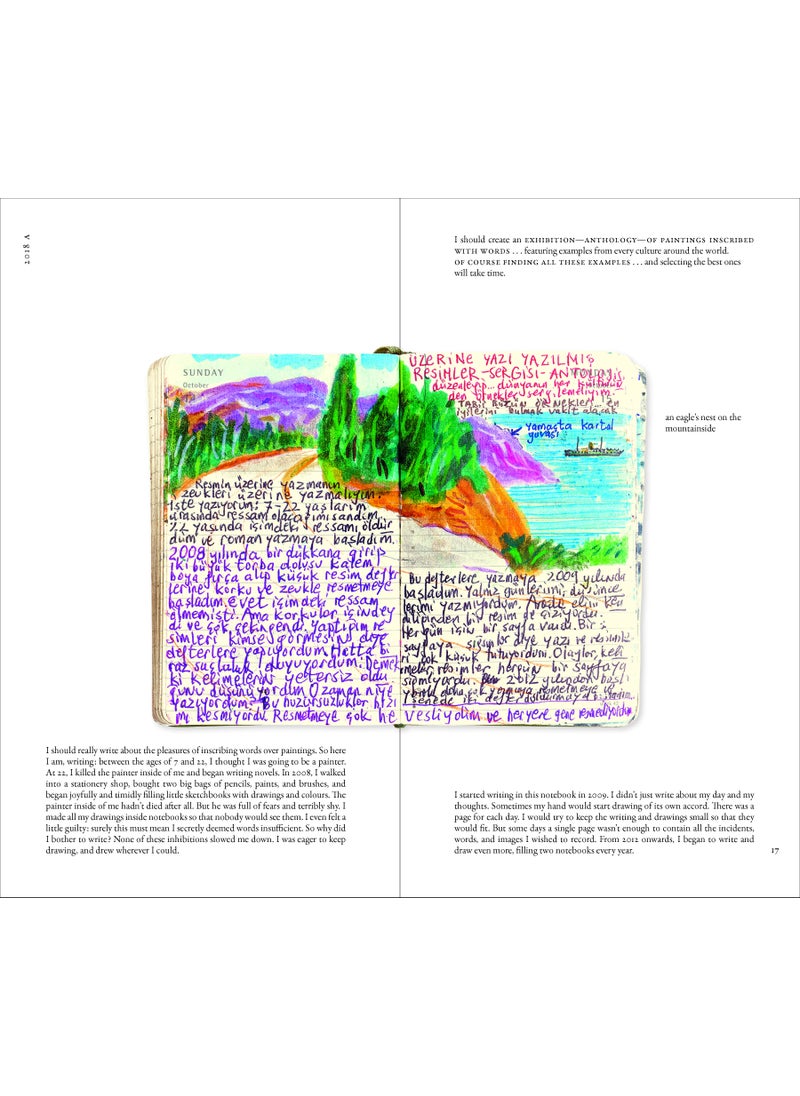 2018 A
I should create an EXHIBITION—ANTHOLOGY—OF PAINTINGS INSCRIBED
WITH WORDS . . . featuring examples from every culture around the world.
OF COURSE FINDING ALL THESE EXAMPLES . . . and selecting the best ones
will take time.
SUNDAY
October
ÜZERİNE YAZI YAZILMIŞ
RESİMLER-SERGİSİ-ANTOLOJİSİ
düzenleyip... dünyanın her
den örnekler sergilemeliyim.
TABİİ BÜTÜN ÖRNEKLERİ... en
iyilerini bulmak vakit alacak
yamaçta kartal
yuvası
an eagle's nest on the
mountainside
Resmin üzerine yazmanın
zevkleri üzerine yazmalıyım.
İşte yazıyorum: 7-22 yaşlarım
arasında ressam olacağımı sandım.
22 yaşında içimdeki ressamı öldür
düm ve roman yazmaya başladım.
2008 yılında bir dükkana girip
iki büyük torba dolusu kalem
boya fırça alıp küçük resim defter
lerine korku ve zevkle resmetmeye
başladım. Evet içimdeki ressam
ölmemişti. Ama korkular içindey
di ve çok çekingendi. Yaptığım re
simleri kimse görmesin diye
defterlere yapıyordum. Hatta bi
raz suçluluk duyuyordum: Demek
ki kelimeleri yetersiz oldu
ğunu düşünüyordum. O zaman niye
yazıyordum? Bu huzursuzluklar hızı
mı kesmiyordu. Resmetmeye çok he
Bu defterlere yazmaya 2009 yılında
başladım. Yalnız günlerimi, düşünce
lerimi yazmıyordum. Arada elim ken
diliğinden bir resim de çiziyordu.
Hergün için bir sayfa vardı. Bir
sayfaya sığsınlar diye yazı ve resimle
ri çok küçük tutuyordum. Olaylar, keli
meler, resimler hergün bir sayfaya
sığmıyordu. 2012 yılından başlı
yarak daha çok yazmaya resmetmeye ve
senede iki defter doldurmaya başladım.
vesliydim ve heryere gene resmediyordum
I should really write about the pleasures of inscribing words over paintings. So here
I am, writing: between the ages of 7 and 22, I thought I was going to be a painter.
At 22, I killed the painter inside of me and began writing novels. In 2008, I walked
into a stationery shop, bought two big bags of pencils, paints, and brushes, and
began joyfully and timidly filling little sketchbooks with drawings and colours. The
painter inside of me hadn't died after all. But he was full of fears and terribly shy. I
made all my drawings inside notebooks so that nobody would see them. I even felt a
little guilty: surely this must mean I secretly deemed words insufficient. So why did
I bother to write? None of these inhibitions slowed me down. I was eager to keep
drawing, and drew wherever I could.
I started writing in this notebook in 2009. I didn't just write about my day and my
thoughts. Sometimes my hand would start drawing of its own accord. There was a
page for each day. I would try to keep the writing and drawings small so that they
would fit. But some days a single page wasn't enough to contain all the incidents,
words, and images I wished to record. From 2012 onwards, I began to write and
draw even more, filling two notebooks every year.
17